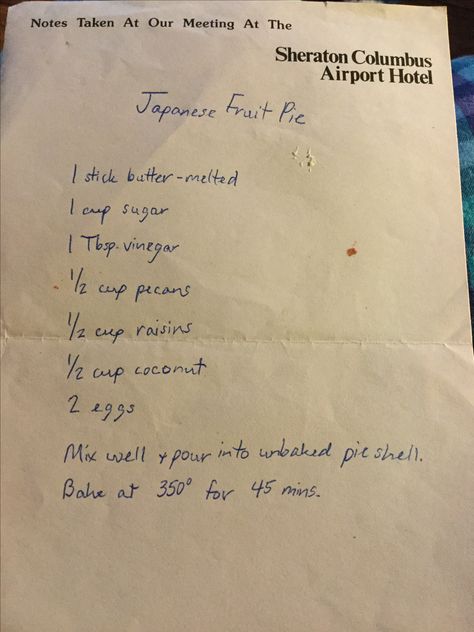 Notes Taken At Our Meeting At The
Sheraton Columbus
Airport Hotel
Japanese Fruit Pie
1 stick butter-melted
1 cup sugar
1 Tbsp. vinegar
1/2 cup pecans
1/2 cup raisins
1/2 cup coconut
2 eggs
Mix well + pour into unbaked pie shell.
Bake at 350° for 45 mins.